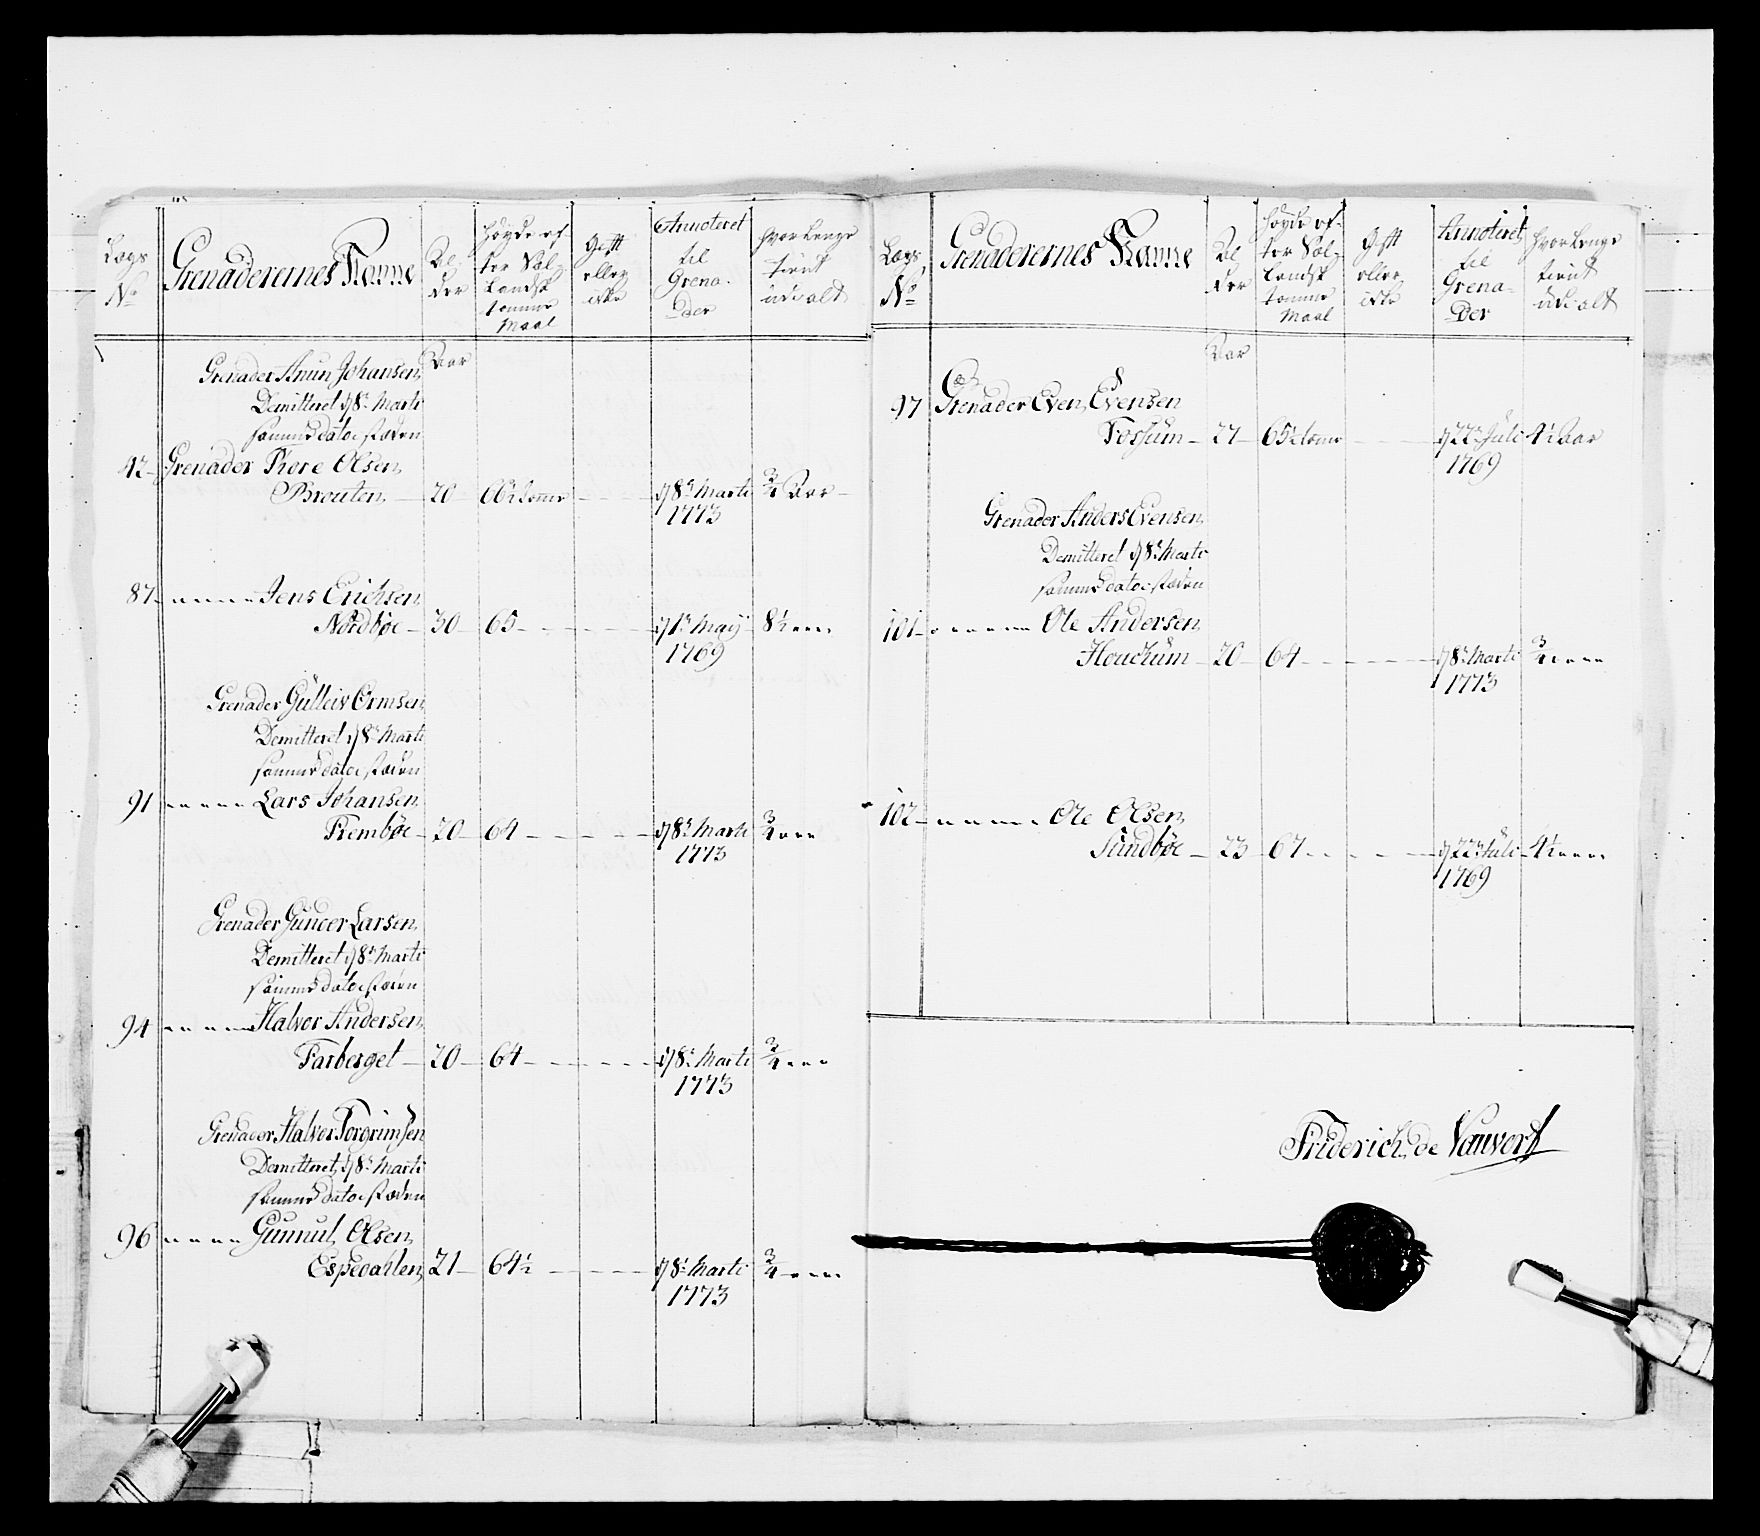 Lægs No
Grenaderernes Nanne
Al-der
Høyde ef-ter Sæl-Landsk tomme Maal
Gift eller ikke
Annoteret til Grena-der
Hvor lenge tient udi alt
Aar
Grenader Amun Johansen
Demitteret d 8t Marti
samme dato i stæden
42 Grenader Tore Olsen
Brouten 20 66½ tomr d 8t Marti ¾ Aar
1773
87 Jens Erichsen
Nordbøe 30 65 d 1t Maÿ 8½
1769
Grenader Gulleiv Ormsen
Demitteret d 8t Marti
samme dato i stæden
91 Lars Johansen
Fembøe 20 64 d 8t Marti ¾
1773
Grenader Gunder Larsen
Demitteret d 8t Marti
samme dato i stæden
94 Halvor Andersen
Farberget 20 64 d 8t Marti ¾
1773
Grenader Halvor Torgrimsen
Demitteret d 8t Marti
samme dato i stæden
96 Gunnul Olsen
Espedahlen 21 64½ d 8t Marti ¾
1773
Lægs No
Grenaderernes Nanne
Al-der
Høyde ef-ter Sæl-Landsk tomme Maal
Gift eller ikke
Annoteret til Grena-der
Hvor lenge tient udi alt
Aar
97 Grenader Even Evensen
Fossum 27 65½ tomr d 22t Juli 4½ Aar
1769
Grenader Anders Evensen
Demitteret d 8t Marti
samme dato i stæden
101 Ole Andersen
20 64 d 8t Marti ¾
1773
102 Ole Olsen
Sundbøe 23 67 d 22t Juli 4½
1769
Friderich de